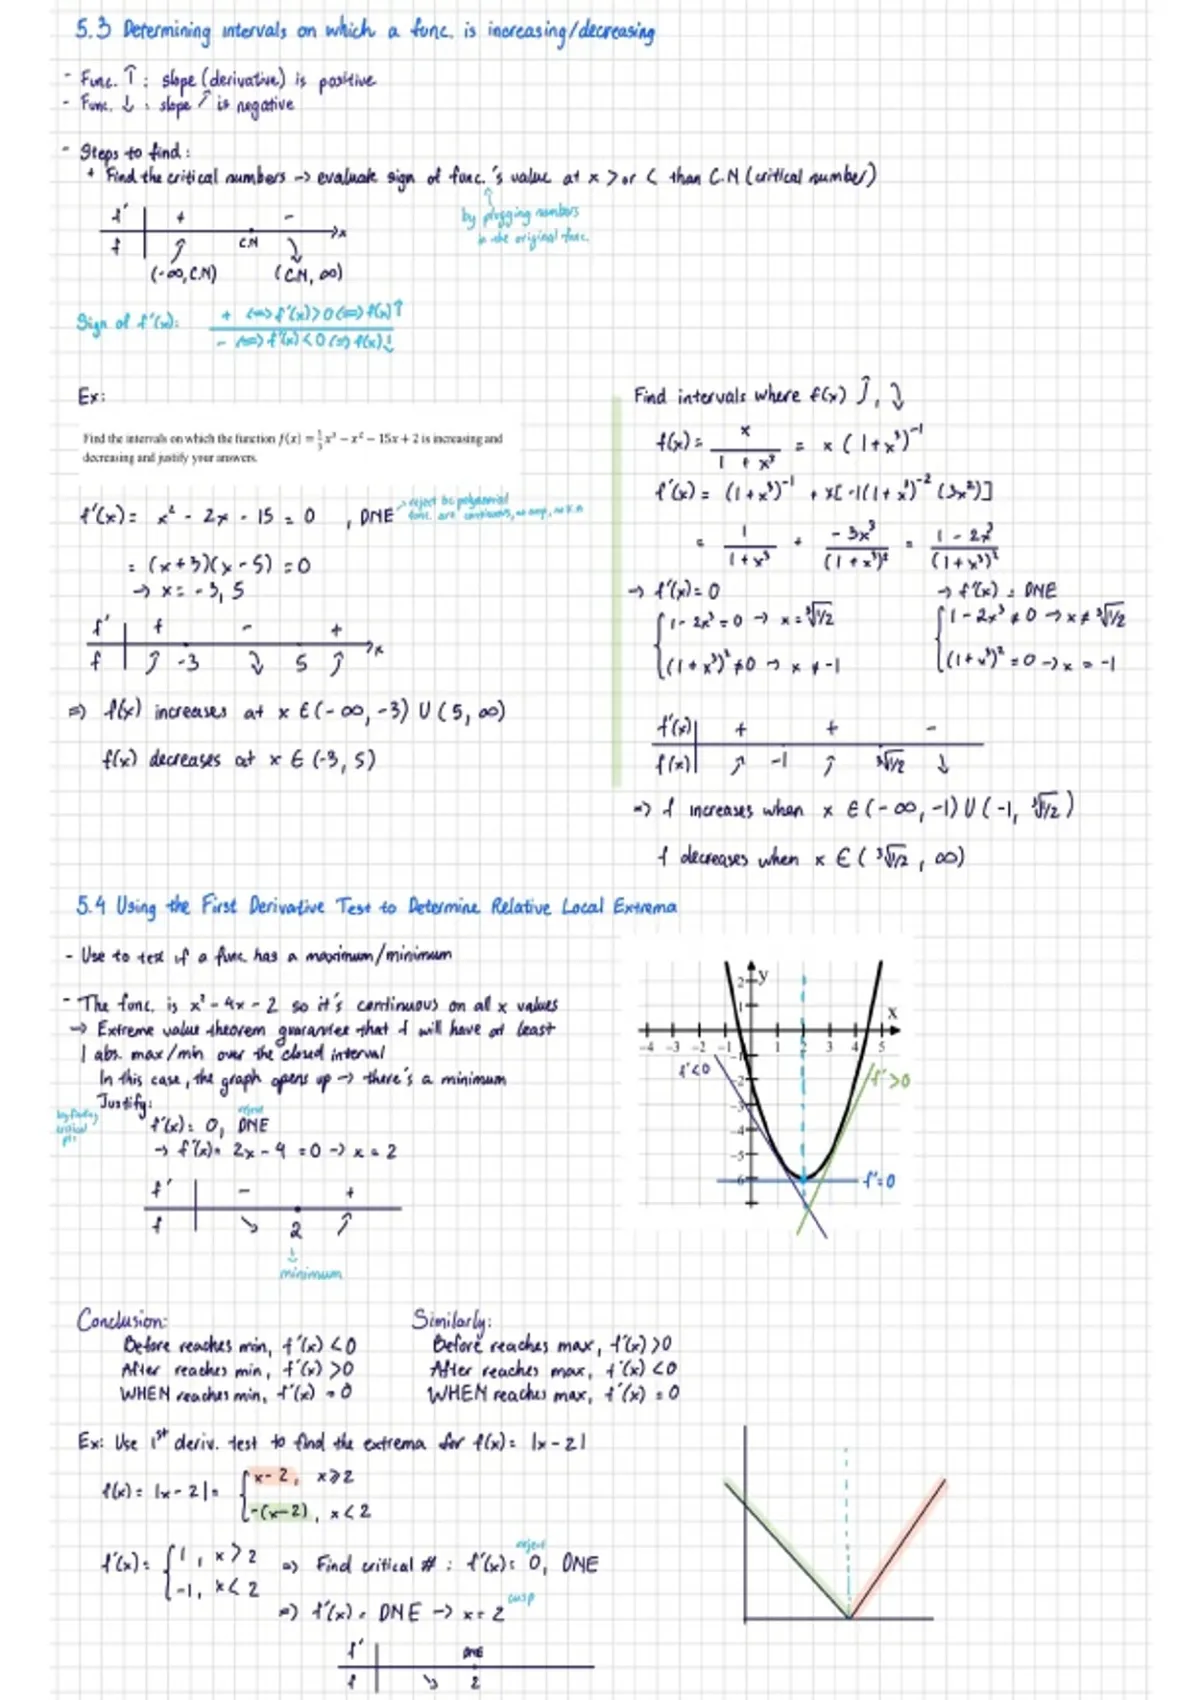 5.3 Determining intervals on which a func. is increasing/decreasing
- Func. ↑ : slope (derivative) is positive
- Func. ↓ : slope ↗ is negative
- Steps to find :
+ Find the critical numbers -> evaluate sign of func.'s value at x > or < than C.N (critical number)
by plugging numbers
in the original func.
f' + -
f ↗ C.N ↘ x
(-∞, C.N) (C.N, ∞)
Sign of f'(x): + <=> f'(x) > 0 <=> f(x) ↑
- <=> f'(x) < 0 <=> f(x) ↓
Ex:
Find the intervals on which the function f(x) = 1/3 x³ − x² − 15x + 2 is increasing and
decreasing and justify your answers.
f'(x) = x² - 2x - 15 = 0 , DNE
-> reject bc polynomial
func. are continuous, no
= (x+3)(x-5) = 0
-> x = -3, 5
f' + - +
f ↗ -3 ↘ 5 ↗ x
=> f(x) increases at x ∈ (-∞, -3) U (5, ∞)
f(x) decreases at x ∈ (-3, 5)
Find intervals where f(x) ↗, ↘
f(x) = x / (1 + x³) = x (1+x³)⁻¹
f'(x) = (1+x³)⁻¹ + x[-1(1+x³)⁻² (3x²)]
= 1/(1+x³) + -3x³/(1+x³)² = (1-2x³)/(1+x³)²
-> f'(x) = 0 -> f'(x) = DNE
{ 1-2x³ = 0 -> x = ³√1/2 { 1-2x³ ≠ 0 -> x ≠ ³√1/2
(1+x³)² ≠ 0 -> x ≠ -1 (1+x³)² = 0 -> x = -1
f'(x) + + -
f(x) ↗ -1 ↗ ³√1/2 ↓
=> f increases when x ∈ (-∞, -1) U (-1, ³√1/2)
f decreases when x ∈ (³√1/2, ∞)
5.4 Using the First Derivative Test to Determine Relative Local Extrema
- Use to test if a func. has a maximum/minimum
- The func. is x² - 4x - 2 so it's continuous on all x values
-> Extreme value theorem guarantee that f will have at least
1 abs. max/min over the closed interval
In this case, the graph opens up -> there's a minimum
Justify:
by finding
critical
pt.
reject
f'(x) = 0, DNE
-> f'(x) = 2x - 4 = 0 -> x = 2
f' - +
f ↘ 2 ↗
↓
minimum
y
x
2
1
-4 -3 -2 -1 1 2 3 4 5
-1
-2
-3
-4
-5
-6
f'<0
f'>0
f'=0
Conclusion:
Before reaches min, f'(x) < 0
After reaches min, f'(x) > 0
WHEN reaches min, f'(x) = 0
Similarly:
Before reaches max, f'(x) > 0
After reaches max, f'(x) < 0
WHEN reaches max, f'(x) = 0
Ex: Use 1st deriv. test to find the extrema for f(x) = |x-2|
f(x) = |x-2| = { x-2, x≥2
-(x-2), x<2
f'(x) = { 1, x>2 => Find critical # : f'(x) = 0, DNE
-1, x<2
reject
=> f'(x) = DNE -> x = 2 cusp
f' DNE
f ↘ 2